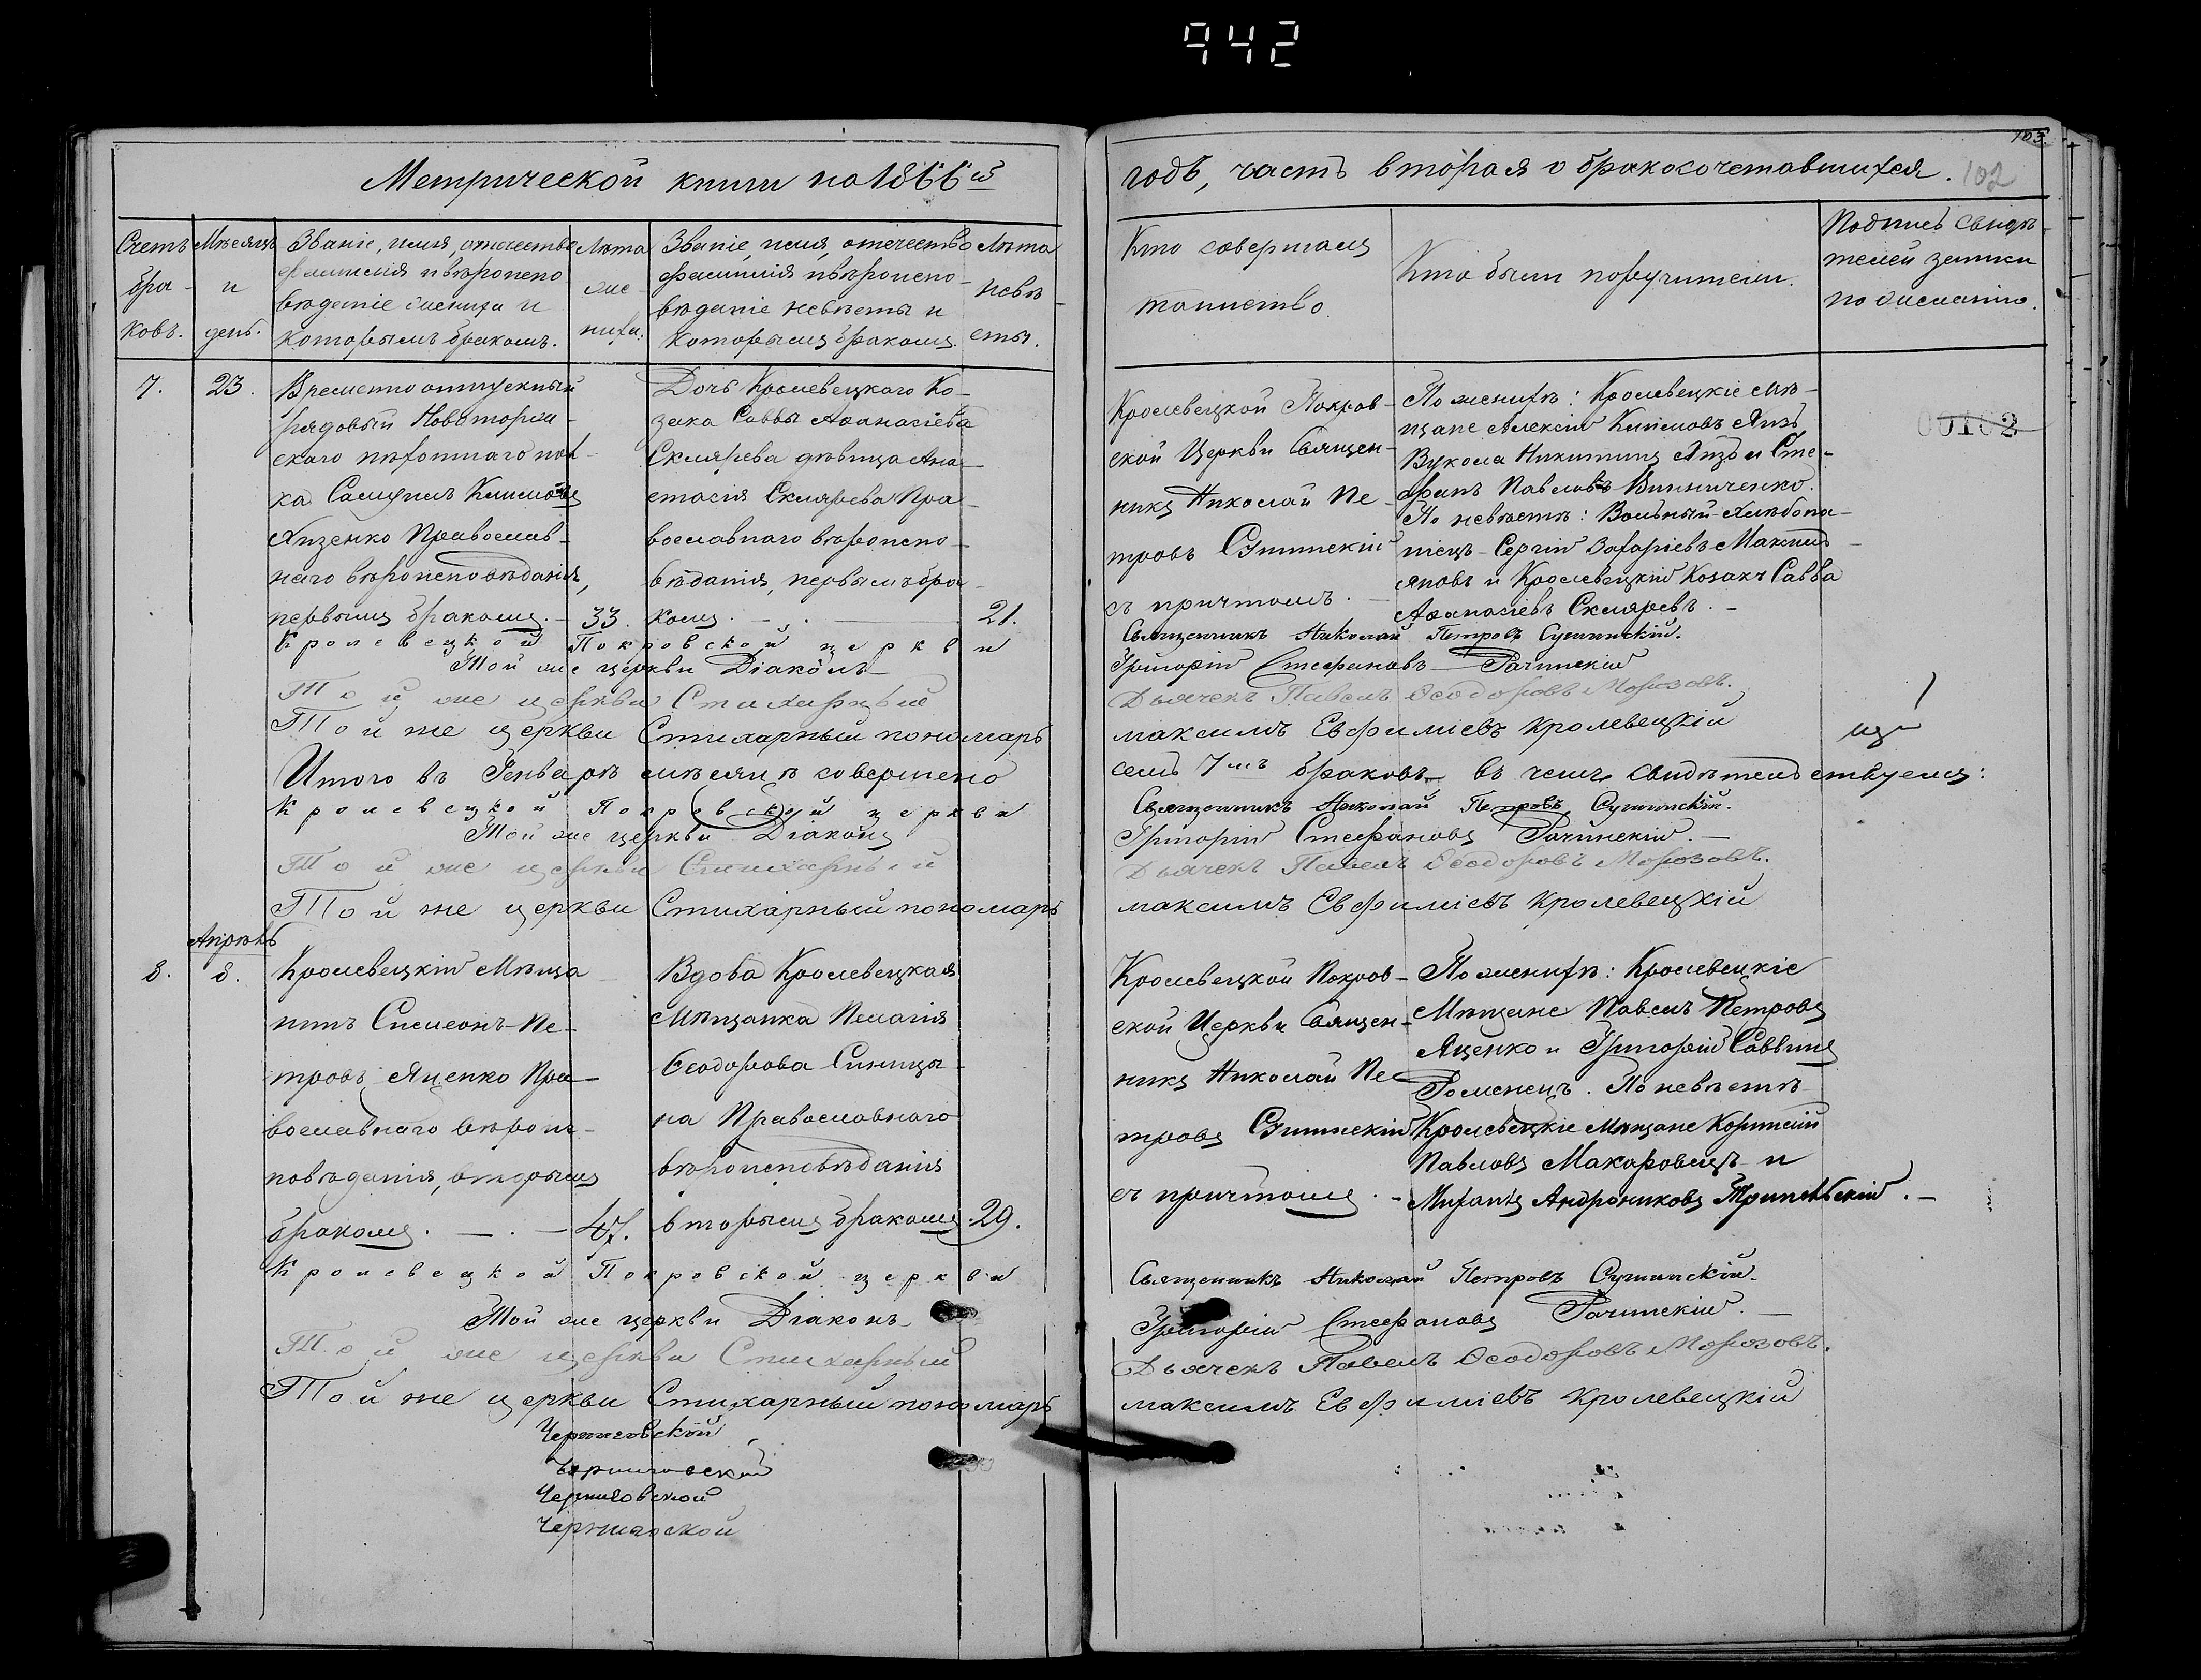 942
Метрической книги на 1866й
годъ, часть вторая о бракосочетавшихся.
103
102
Счетъ бра- ковъ.
Мѣсяцъ и день.
Званіе, имя, отечество
фамилія и вѣроиспо
вѣданіе жениха и
которымъ бракомъ.
Лѣта
же-
ниха.
Званіе, имя, отечество
фамилія и вѣроиспо-
вѣданіе невѣсты и
которымъ бракомъ.
Лѣта
невѣ-
сты.
Кто совершалъ
таинство
Кто были поручители.
Подпись свидѣ-
телей записи
по желанію.
7.
23.
Временно отпускный
рядовый Новоторж-
скаго пѣхотнаго пол-
ка Самуилъ Климовъ
Хизенко Православ-
наго вѣроисповѣданія,
первымъ бракомъ.
33.
Дочь Кролевецкаго Ко-
зака Саввы Аѳанасіева
Склярева дѣвица Ана-
стасія Склярева Пра-
вославнаго вѣроиспо-
вѣданія, первымъ бра-
комъ.
21.
Кролевецкой Покров-
ской Церкви Священ-
никъ Николай Пе-
тровъ Сушинскій
съ причтомъ.
По женихѣ: Кролевецкіе мѣ-
щане Алексій Климовъ
Вукола Никитинъ и Сте-
фанъ Павловъ Винниченко.
По невѣстѣ: Вольный хлѣбопа-
шецъ Сергій Захаріевъ Максим
яновъ и Кролевецкій Козакъ Савва
Аѳанасіевъ Скляревъ.
00102
Кролевецкой Покровской церкви
Священникъ Николай Петровъ Сушинскій.
Той же церкви Діаконъ
Григорій Стефановъ Рачинскій
Той же церкви Стихарный
Дьячекъ Павелъ Ѳеодоровъ Морозовъ.
Той же церкви Стихарный пономарь
максимъ Евфиміевъ кролевецкій
Итого въ Генварѣ мѣсяцѣ совершено
семь 7мъ браковъ въ чемъ свидѣтельствуемъ:
Кролевецкой Покровской церкви
Священникъ Николай Петровъ Сушинскій.
Той же церкви Діаконъ
Григорій Стефановъ Рачинскій.
Той же церкви Стихарный
Дьячекъ Павелъ Ѳеодоровъ Морозовъ.
Той же церкви Стихарный пономарь
максимъ Евфиміевъ кролевецкій
Апрѣль
8.
8.
Кролевецкій Мѣща
нинъ Симеонъ Пе-
тровъ Яценко Пра-
вославнаго вѣроис-
повѣданія, вторымъ
бракомъ.
47.
Вдова Кролевецкая
Мѣщанка Пелагія
Ѳеодорова Синицы-
на Православнаго
вѣроисповѣданія
вторымъ бракомъ.
29.
Кролевецкой Покров-
ской Церкви Священ-
никъ Николай Пе-
тровъ Сушинскій
съ причтомъ.
По женихѣ: Кролевецкіе
Мѣщане Павелъ Петровъ
Яценко и Григорій Саввинъ
Роменецъ. По невѣстѣ
Кролевецкіе Мѣщане Корнилій
Павловъ Макаровецъ и
Михаилъ Андрониковъ Трипольскій.
Кролевецкой Покровской церкви
Священникъ Николай Петровъ Сушинскій.
Той же церкви Діаконъ
Григорій Стефановъ Рачинскій.
Той же церкви Стихарный
Дьячекъ Павелъ Ѳеодоровъ Морозовъ.
Той же церкви Стихарный пономарь
максимъ Евфиміевъ кролевецкій
Черниговской
Черниговской
Черниговской
Черниговской